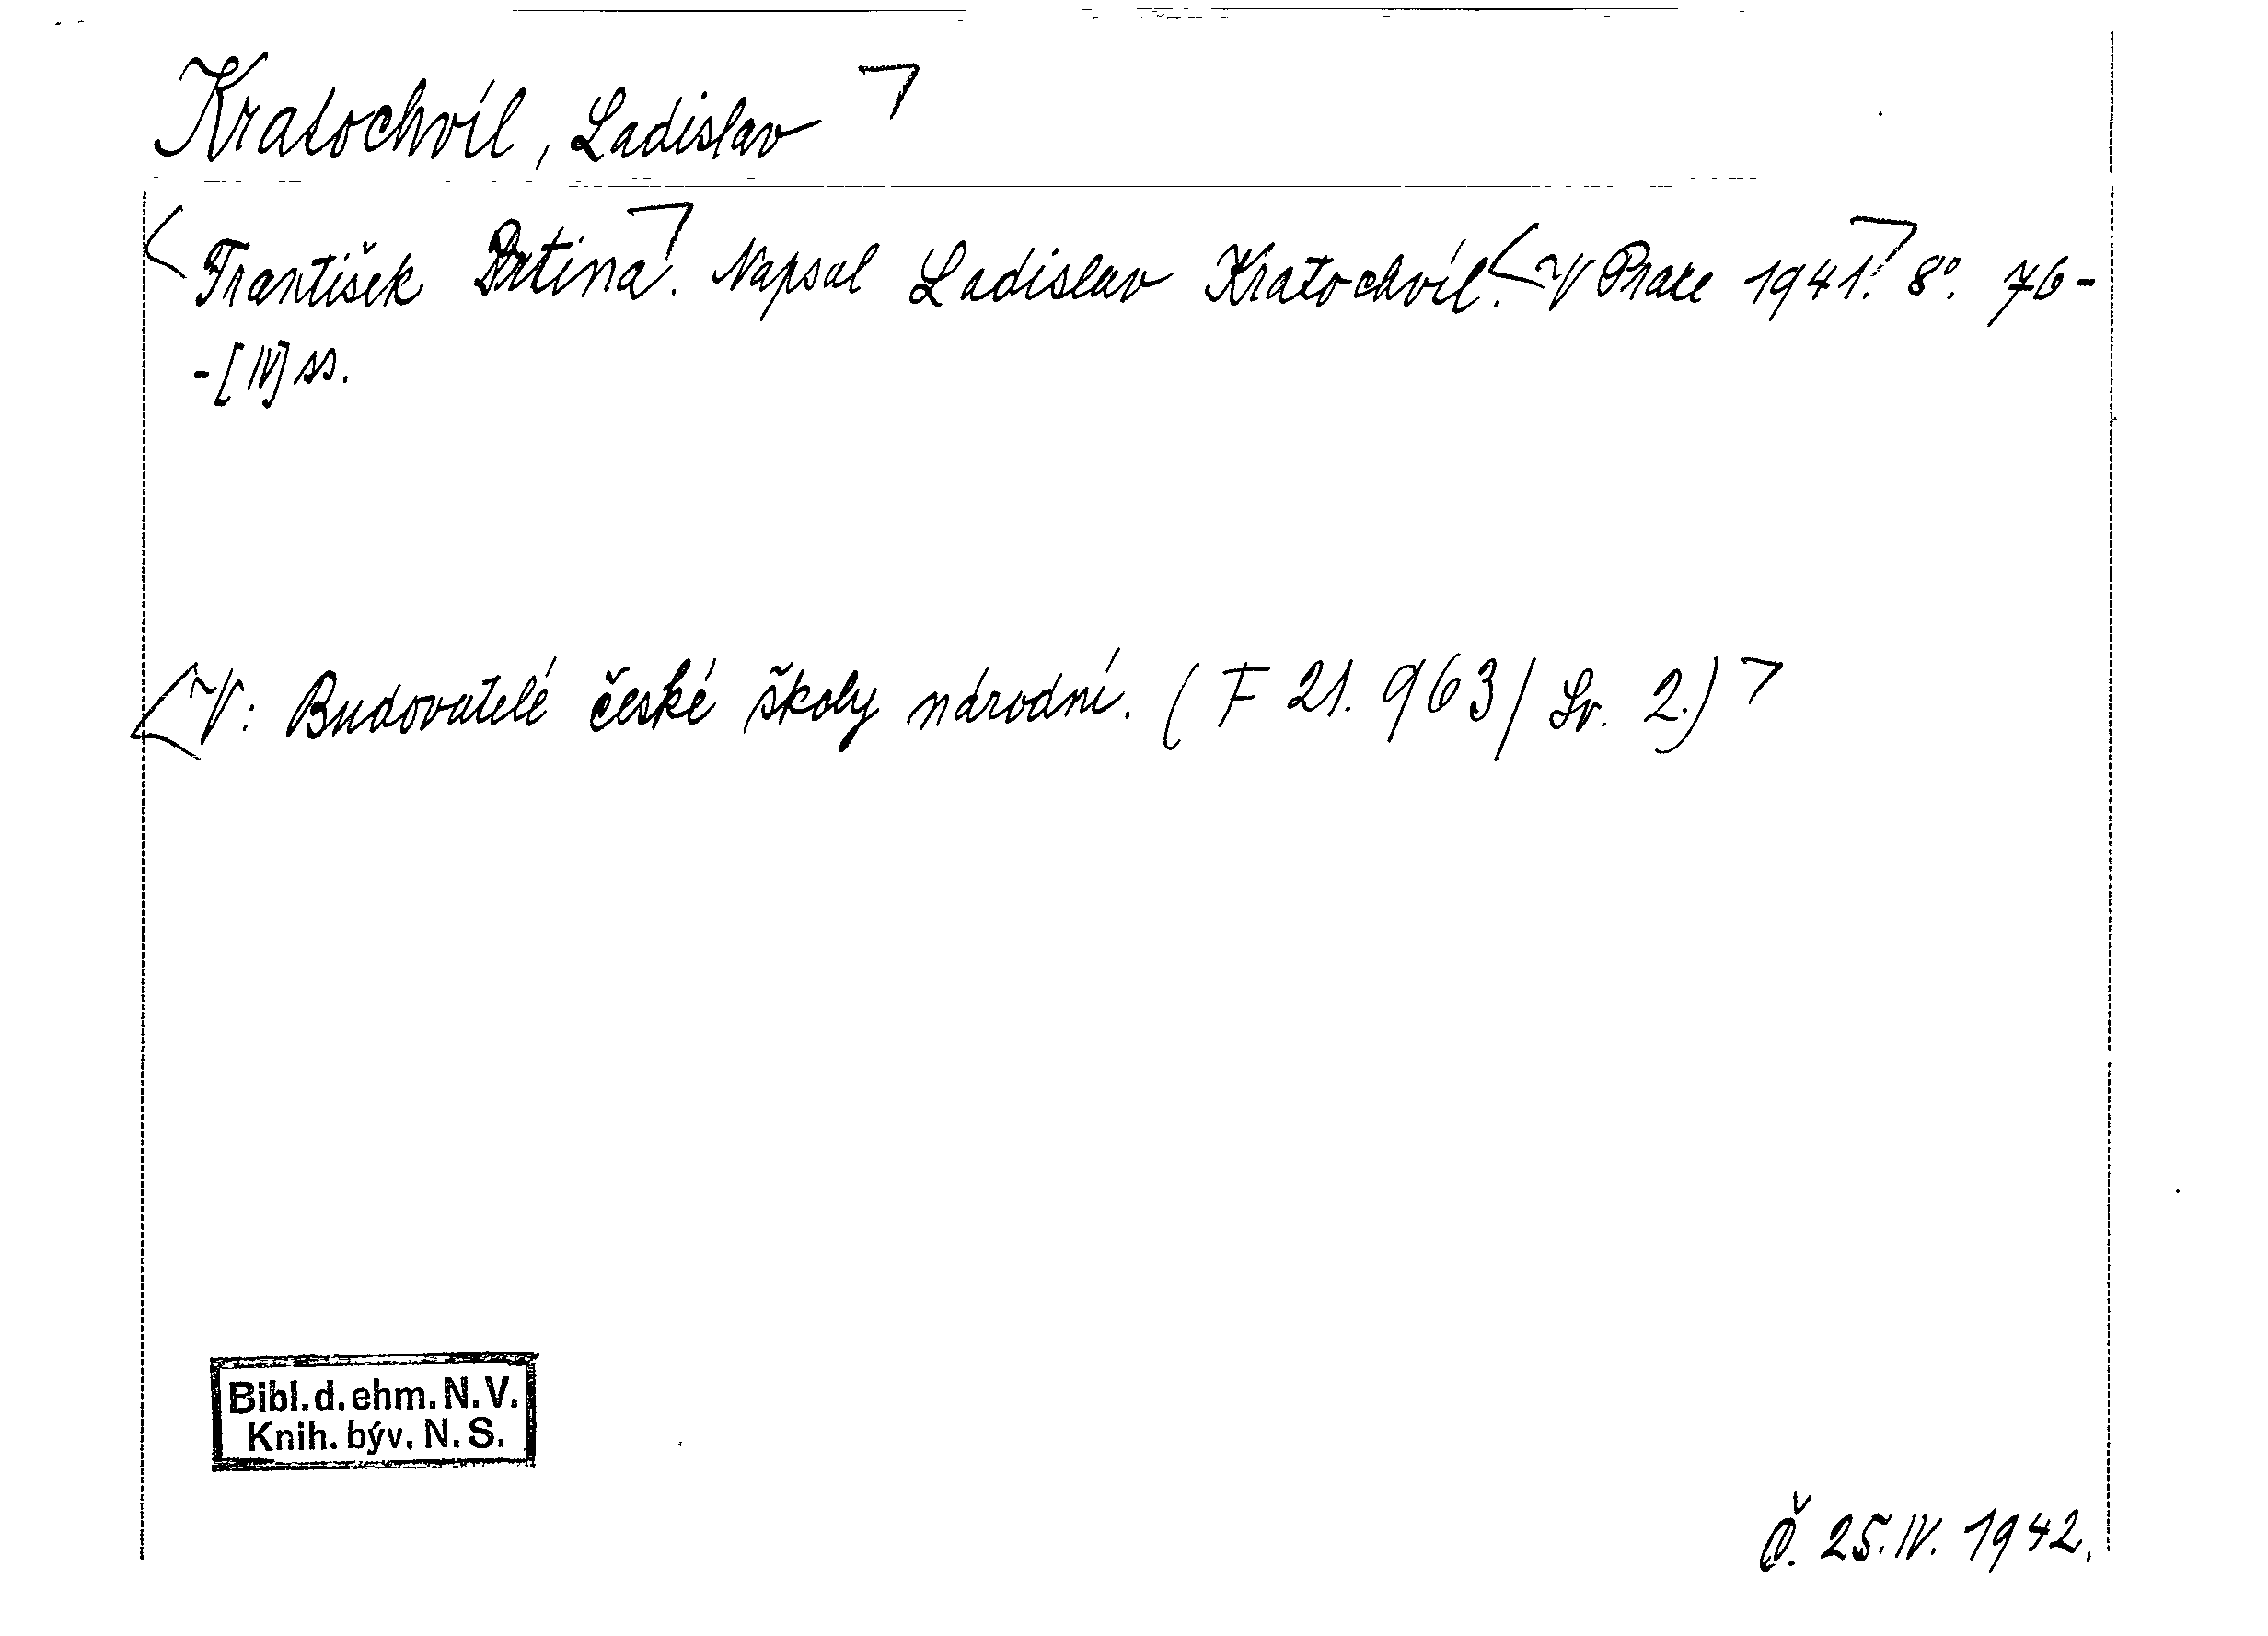 Kratochvíl, Ladislav
František Drtina. Napsal Ladislav Kratochvíl. V Praze 1941. 8°. 76-
-[IV] ss.
V: Budovatelé české školy národní. (F 21.963/Sv. 2.)
Bibl.d.ehm.N.V.
Knih.býv.N.S.
Č. 25.IV. 1942.